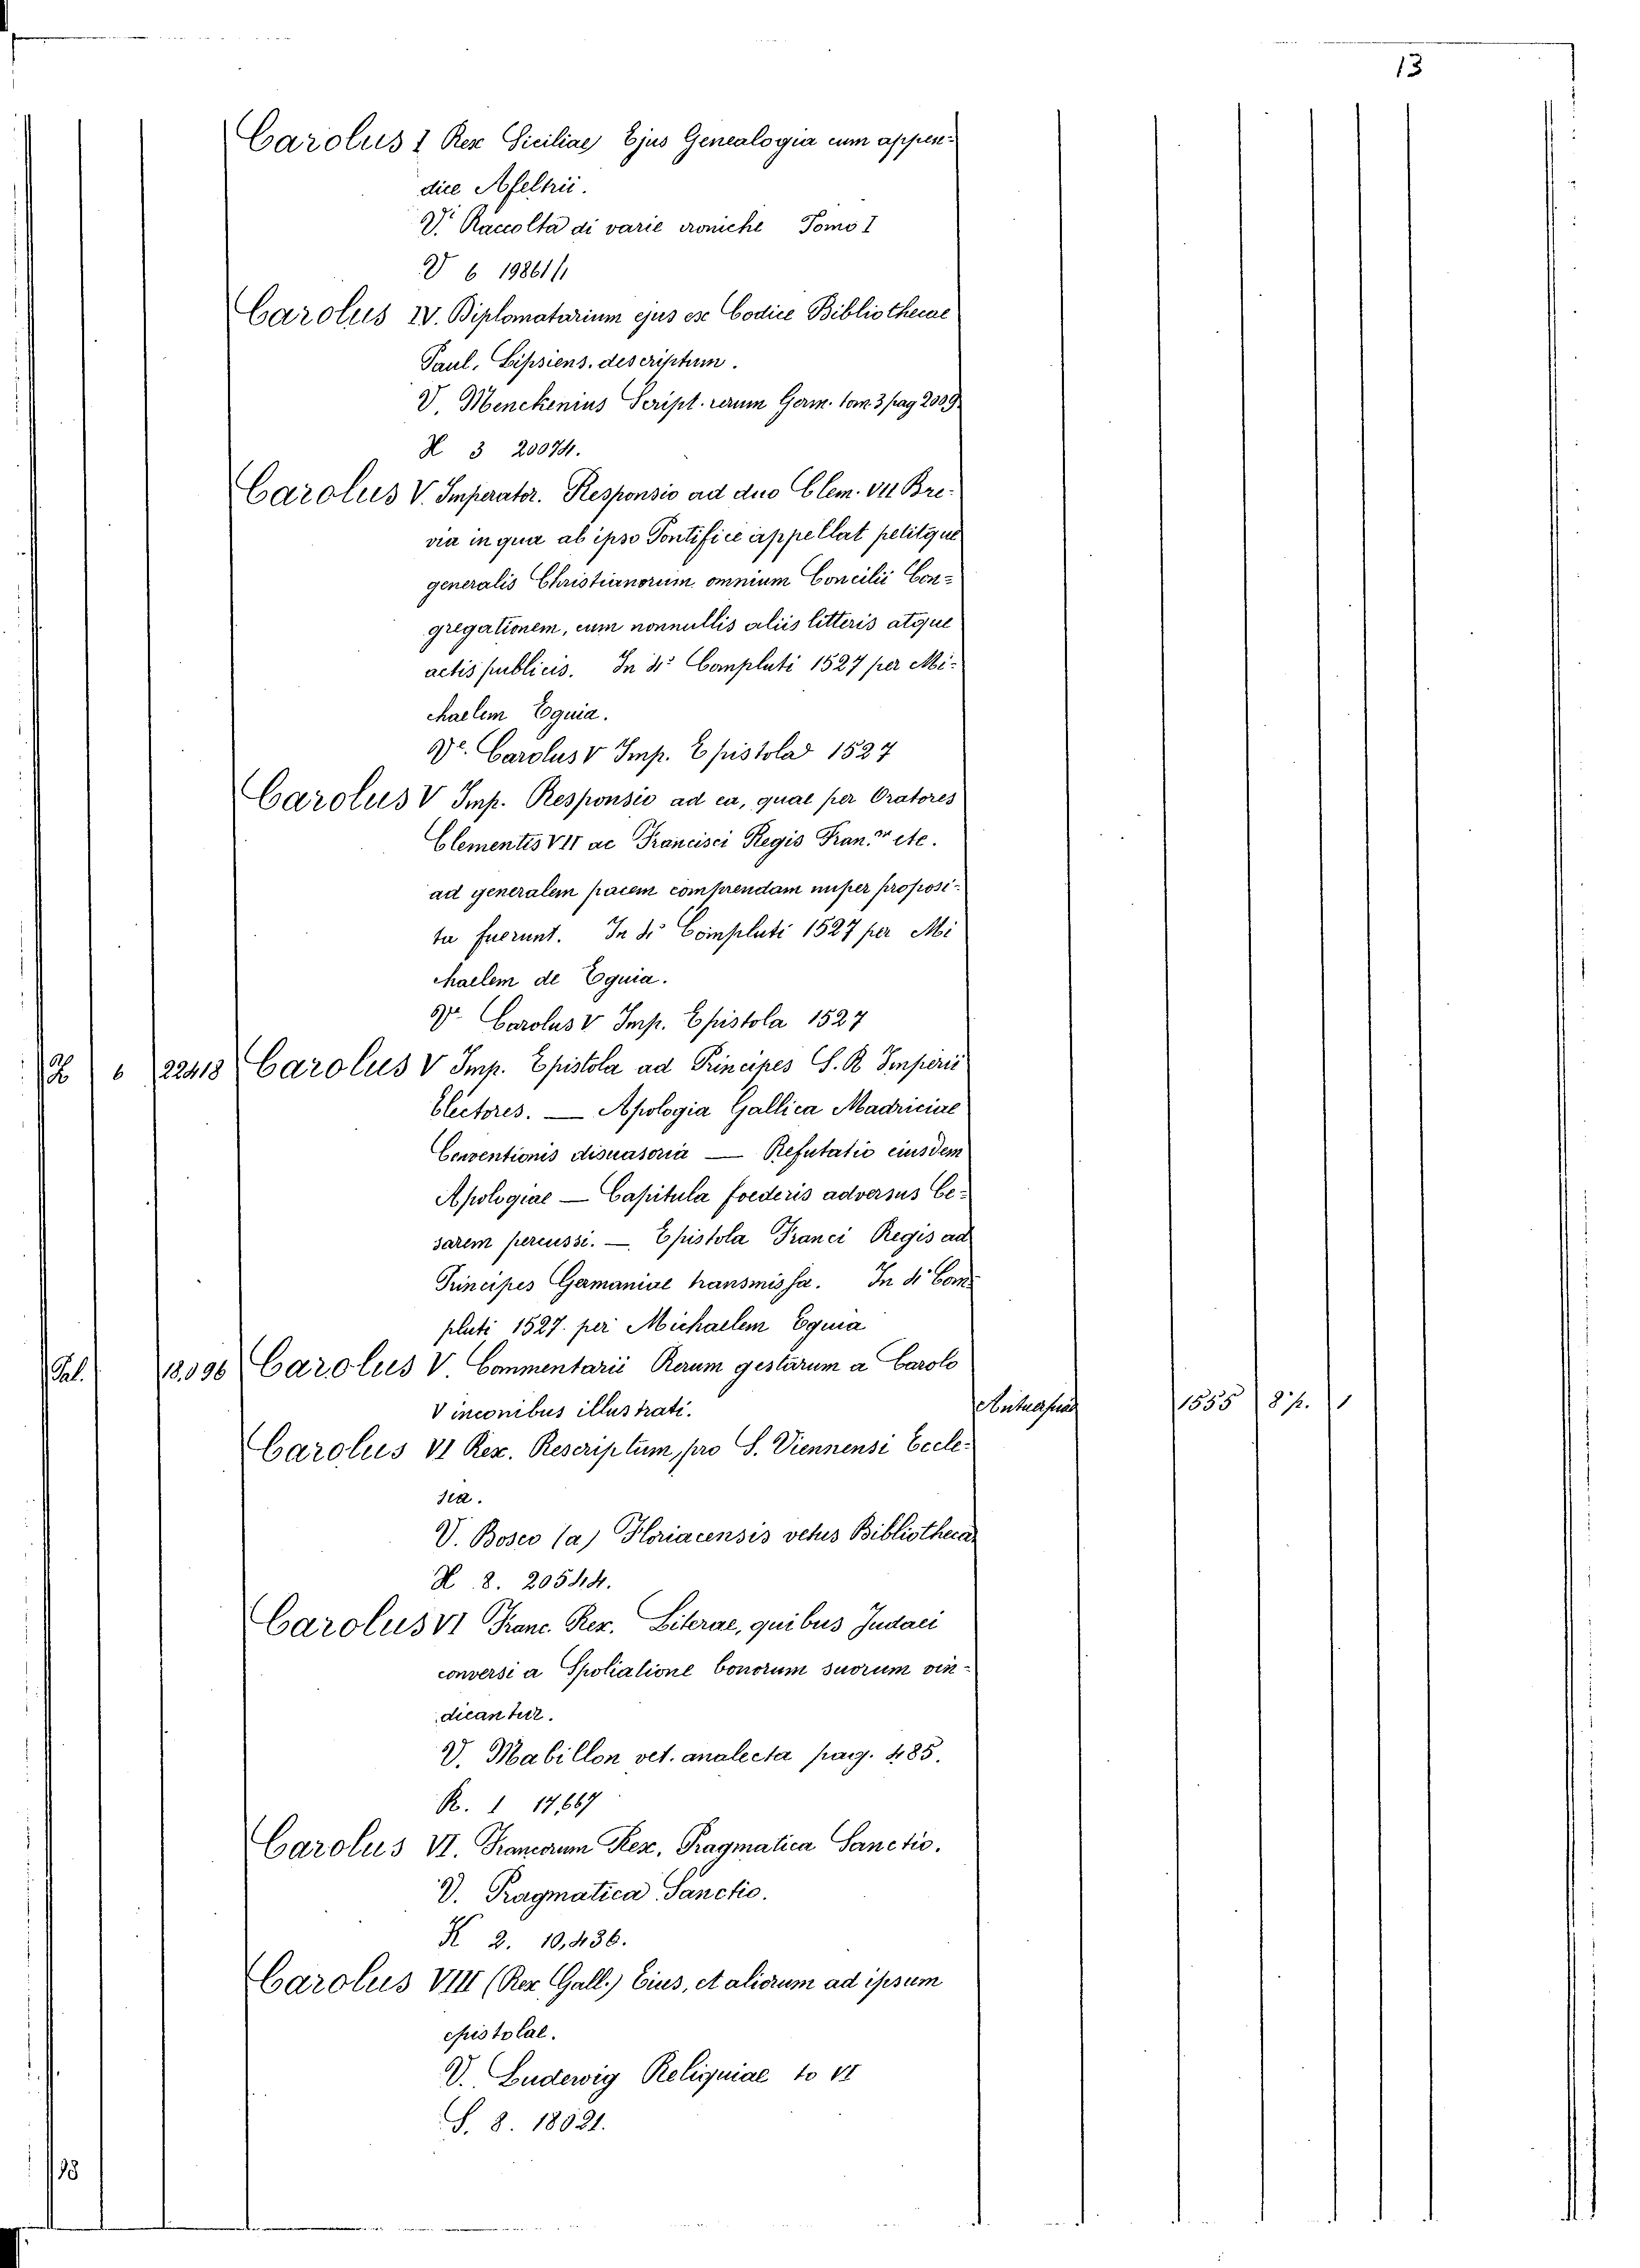 13
Carolus I Rex Siciliae Ejus Genealogia cum appen-
dice Afeltrii.
V. Raccolta di varie croniche Tomo I
V 6 19861/1
Carolus IV. Diplomatarium ejus ex Codice Bibliothecae
Paul. Lipsiens. descriptum.
V. Menckenius Script. rerum Germ. tom. 3 pag 2009
H 3 20074.
Carolus V. Imperator. Responsio ad duo Clem. VII Bre-
via in qua ab ipso Pontifice appellat petitque
generalis Christianorum omnium Concilii Con=
gregationem, cum nonnullis aliis litteris atque
actis publicis. In 4º Compluti 1527 per Mi-
chaelem Eguia.
Ve. Carolus V Imp. Epistola 1527
Carolus V Imp. Responsio ad ea, quae per Oratores
Clementis VII ac Francisci Regis Fran. etc.
ad generalem pacem comprendam nuper proposi-
ta fuerunt. In 4º Compluti 1527 per Mi
chaelem de Eguia.
Ve Carolus V Imp. Epistola 1527
6 22418 Carolus V Imp. Epistola ad Principes S. R Imperii
Electores. — Apologia Gallica Madriciae
Conventionis disuasoria — Refutatio eiusdem
Apologiae — Capitula foederis adversus Ce-
sarem percussi. — Epistola Franci Regis ad
Principes Germaniae transmissa. In 4º Com
pluti 1527. per Michaelem Eguia
Pal. 18,096 Carolus V. Commentarii Rerum gestarum a Carolo
V inconibus illustrati. Antuapiae 1555 8º p. 1
Carolus VI Rex. Rescriptum pro S. Viennensi Eccle-
sia.
V. Bosco (a) Floriacensis vetus Bibliotheca
H 8. 20544.
Carolus VI Franc. Rex. Literae, quibus Judaei
conversi a Spoliatione bonorum suorum vin-
dicantur.
V. Mabillon vet. analecta pag. 485.
R. 1 17,667
Carolus VI. Francorum Rex, Pragmatica Sanctio.
V. Pragmatica Sanctio.
K 2. 10,436.
Carolus VIII (Rex Gall.) Eius, et aliorum ad ipsum
epistolae.
V. Ludewig Reliquiae to VI
S. 8. 18021.